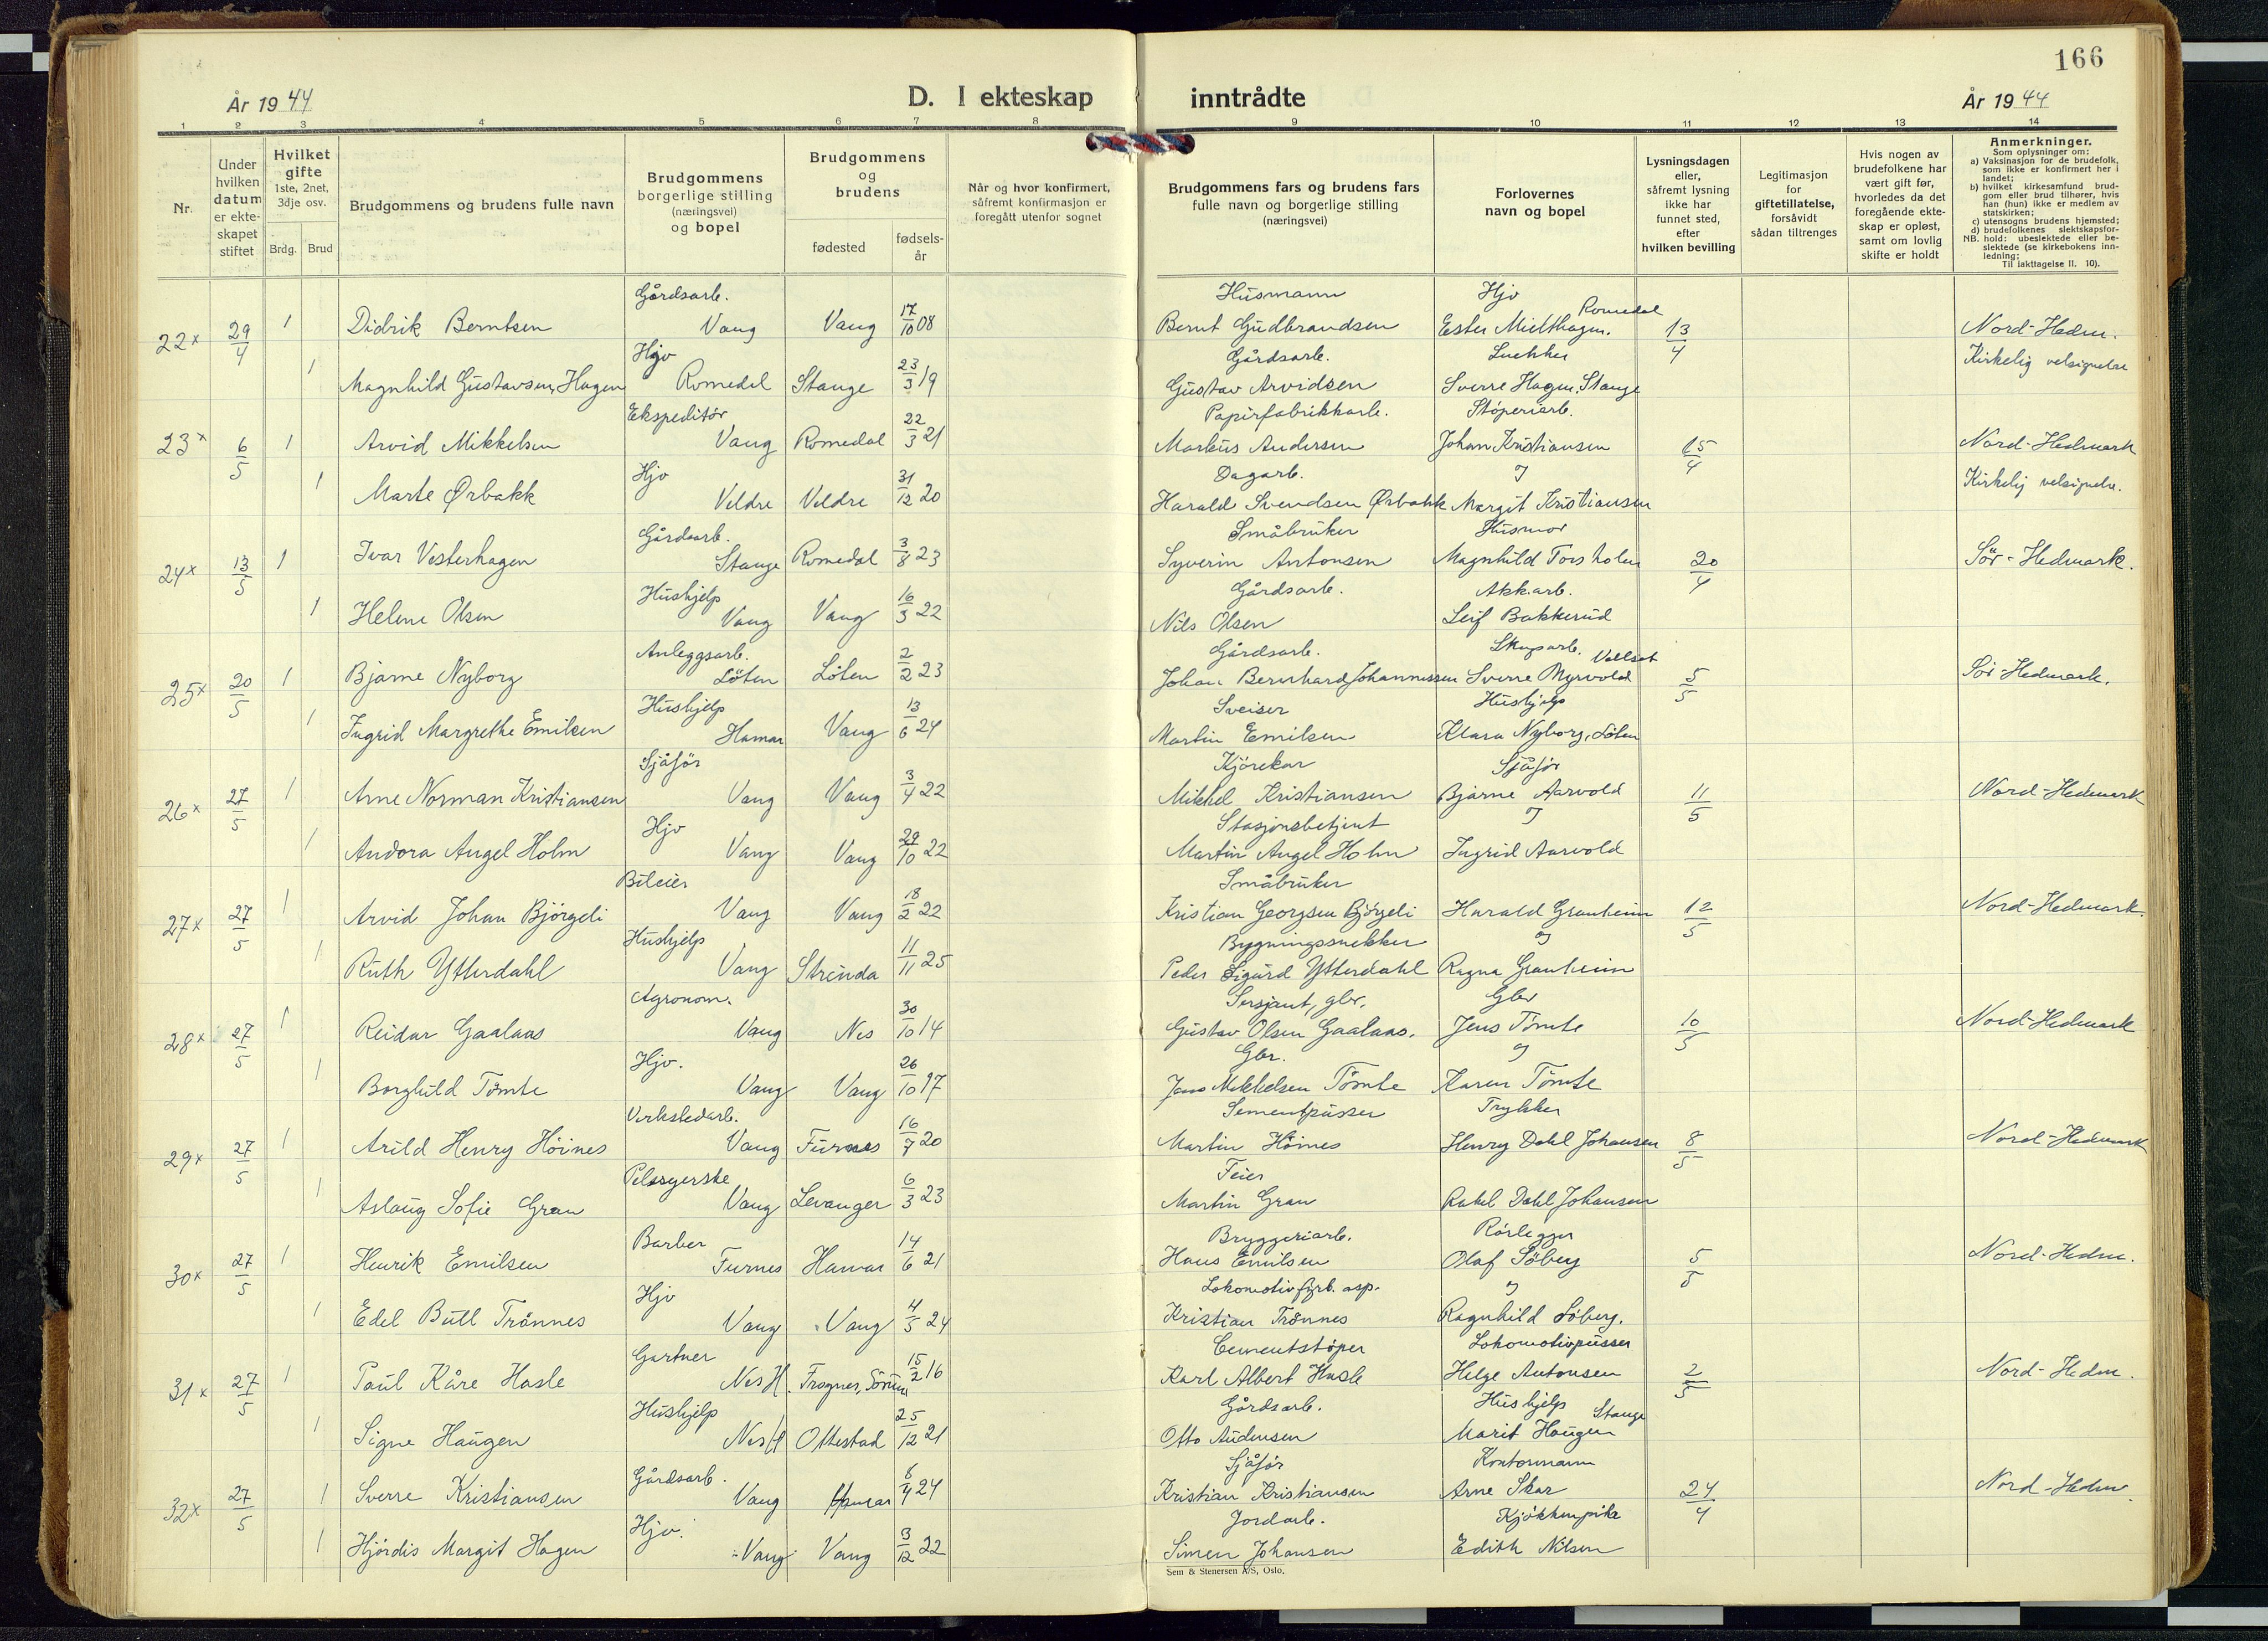 166
År 1944
D. I ekteskap inntrådte
År 1944
1 2 3 4 5 6 7 8 9 10 11 12 13 14
Nr.
Under hvilken datum er ekte-skapet stiftet
Hvilket gifte 1ste, 2net, 3dje osv.
Brdg. Brud
Brudgommens og brudens fulle navn
Brudgommens borgerlige stilling (næringsvei) og bopel
Brudgommens og brudens
fødested
fødsels-år
Når og hvor konfirmert, såfremt konfirmasjon er foregått utenfor sognet
Brudgommens fars og brudens fars fulle navn og borgerlige stilling (næringsvei)
Forlovernes navn og bopel
Lysningsdagen eller, såfremt lysning ikke har funnet sted, efter hvilken bevilling
Legitimasjon for giftetillatelse, forsåvidt sådan tiltrenges
Hvis nogen av brudefolkene har vært gift før, hvorledes da det foregående ekte-skap er opløst, samt om lovlig skifte er holdt
Anmerkninger.
Som oplysninger om:
a) Vaksinasjon for de brudefolk, som ikke er konfirmert her i landet;
b) hvilket kirkesamfund brud-gom eller brud tilhører, hvis han (hun) ikke er medlem av statskirken;
c) utensogns brudens hjemsted;
d) brudefolkenes slektskapsfor-hold: ubeslektede eller be-slektede (se kirkebokens inn-ledning;
NB. Til iakttagelse II. 10).
Gårdsarb. Husmann Hjv Romedal
22x 29/4 1 Didrik Berntsen Vang Vang 17/10 08 Bernt Gudbrandsen Ester Mielthagen. 13/4 Nord-Hedm.
Hjv Gårdsarb. Snekker Kirkelig velsignelse
1 Magnhild Gustavsen, Hagen Romedal Stange 23/3 19 Gustav Arvidsen Sverre Hagen, Stange
Ekspeditör Papirfabrikkarb. Stöperiarb.
23x 6/5 1 Arvid Mikkelsen Vang Romedal 22/3 21 Markus Andersen Johan Kristiansen 15/4 Nord-Hedmark
Hjv Dagarb. og Kirkelig velsignelse.
1 Marte Ørbakk Veldre Veldre 31/12 20 Harald Svendsen Ørbakk Margit Kristiansen
Gårdsarb. Småbruker Husmor
24x 13/5 1 Ivar Vesterhagen Stange Romedal 3/8 23 Syverin Antonsen Magnhild Torsholm 20/4 Sör-Hedmark.
Hushjelp Gårdsarb. Akk.arb.
1 Helene Olsen Vang Vang 16/3 22 Nils Olsen Leif Bakkerud
Anleggsarb. Gårdsarb. Skogarb. Vallset
25x 20/5 1 Bjarne Nyborg Löten Löten 2/2 23 Johan Bernhard Johannessen Sverre Myrvold 5/5 Sör-Hedmark.
Hushjelp Sveiser Hushjelp
1 Ingrid Margrethe Emilsen Hamar Vang 13/6 24 Martin Emilsen Klara Nyborg, Löten
Sjåför Kjörekar Sjåför
26x 27/5 1 Arne Norman Kristiansen Vang Vang 3/4 22 Mikkel Kristiansen Bjarne Aarvold 11/5 Nord-Hedmark
Hjv Stasjonsbetjent og
1 Andora Angel Holm Vang Vang 29/10 22 Martin Angel Holm Ingrid Aarvold
Bileier Småbruker
27x 27/5 1 Arvid Johan Björgeli Vang Vang 18/2 22 Kristian Georgsen Björgeli Harald Granheim 12/5 Nord-Hedmark.
Hushjelp Bygningssnekker og
1 Ruth Ytterdahl Vang Strinda 11/11 25 Peder Sigurd Ytterdahl Ragna Granheim
Agronom. Sersjant, gbr. Gbr
28x 27/5 1 Reidar Gaalaas Vang Nes 30/10 14 Gustav Olsen Gaalaas. Jens Tömte 10/5 Nord-Hedmark
Hjv. Gbr. og
1 Borghild Tömte Vang Vang 26/10 17 Jens Mikkelsen Tömte Karen Tömte
Verkstedarb. Sementpusser Trykker
29x 27/5 1 Arild Henry Höines Vang Furnes 16/7 20 Martin Höines Henry Dahl Johansen 8/5 Nord-Hedmark
Pelssyerske Feier
1 Aslaug Sofie Gran Vang Levanger 6/3 23 Martin Gran Rakel Dahl Johansen
Barber Bryggeriarb. Rörlegger
30x 27/5 1 Henrik Emilsen Furnes Hamar 14/6 21 Hans Emilsen Olaf Söberg 5/5 Nord-Hedm.
Hjv Lokomotivfyrb. asp. og
1 Edel Bull Trönnes Vang Vang 4/5 24 Kristian Trönnes Ragnhild Söberg.
Gartner Cementstöper Lokomotivpusser
31x 27/5 1 Paul Kåre Hasle Nes H. Frogner, Sörum 15/2 16 Karl Albert Hasle Helge Antonsen 2/5 Nord-Hedm.
Hushjelp Gårdsarb. Hushjelp Stange
1 Signe Haugen Nes H Ottestad 25/12 21 Otto Andersen Marit Haugen
Gårdsarb. Sjåför Kontormann
32x 27/5 1 Sverre Kristiansen Vang Hamar 8/4 24 Kristian Kristiansen Arne Skar 24/4 Nord-Hedm.
Hjv. Jordarb. Kjökkenpike
1 Hjördis Margit Hagen Vang Vang 3/12 22 Simen Johansen Edith Nilsen
Sem & Stenersen A/S, Oslo.